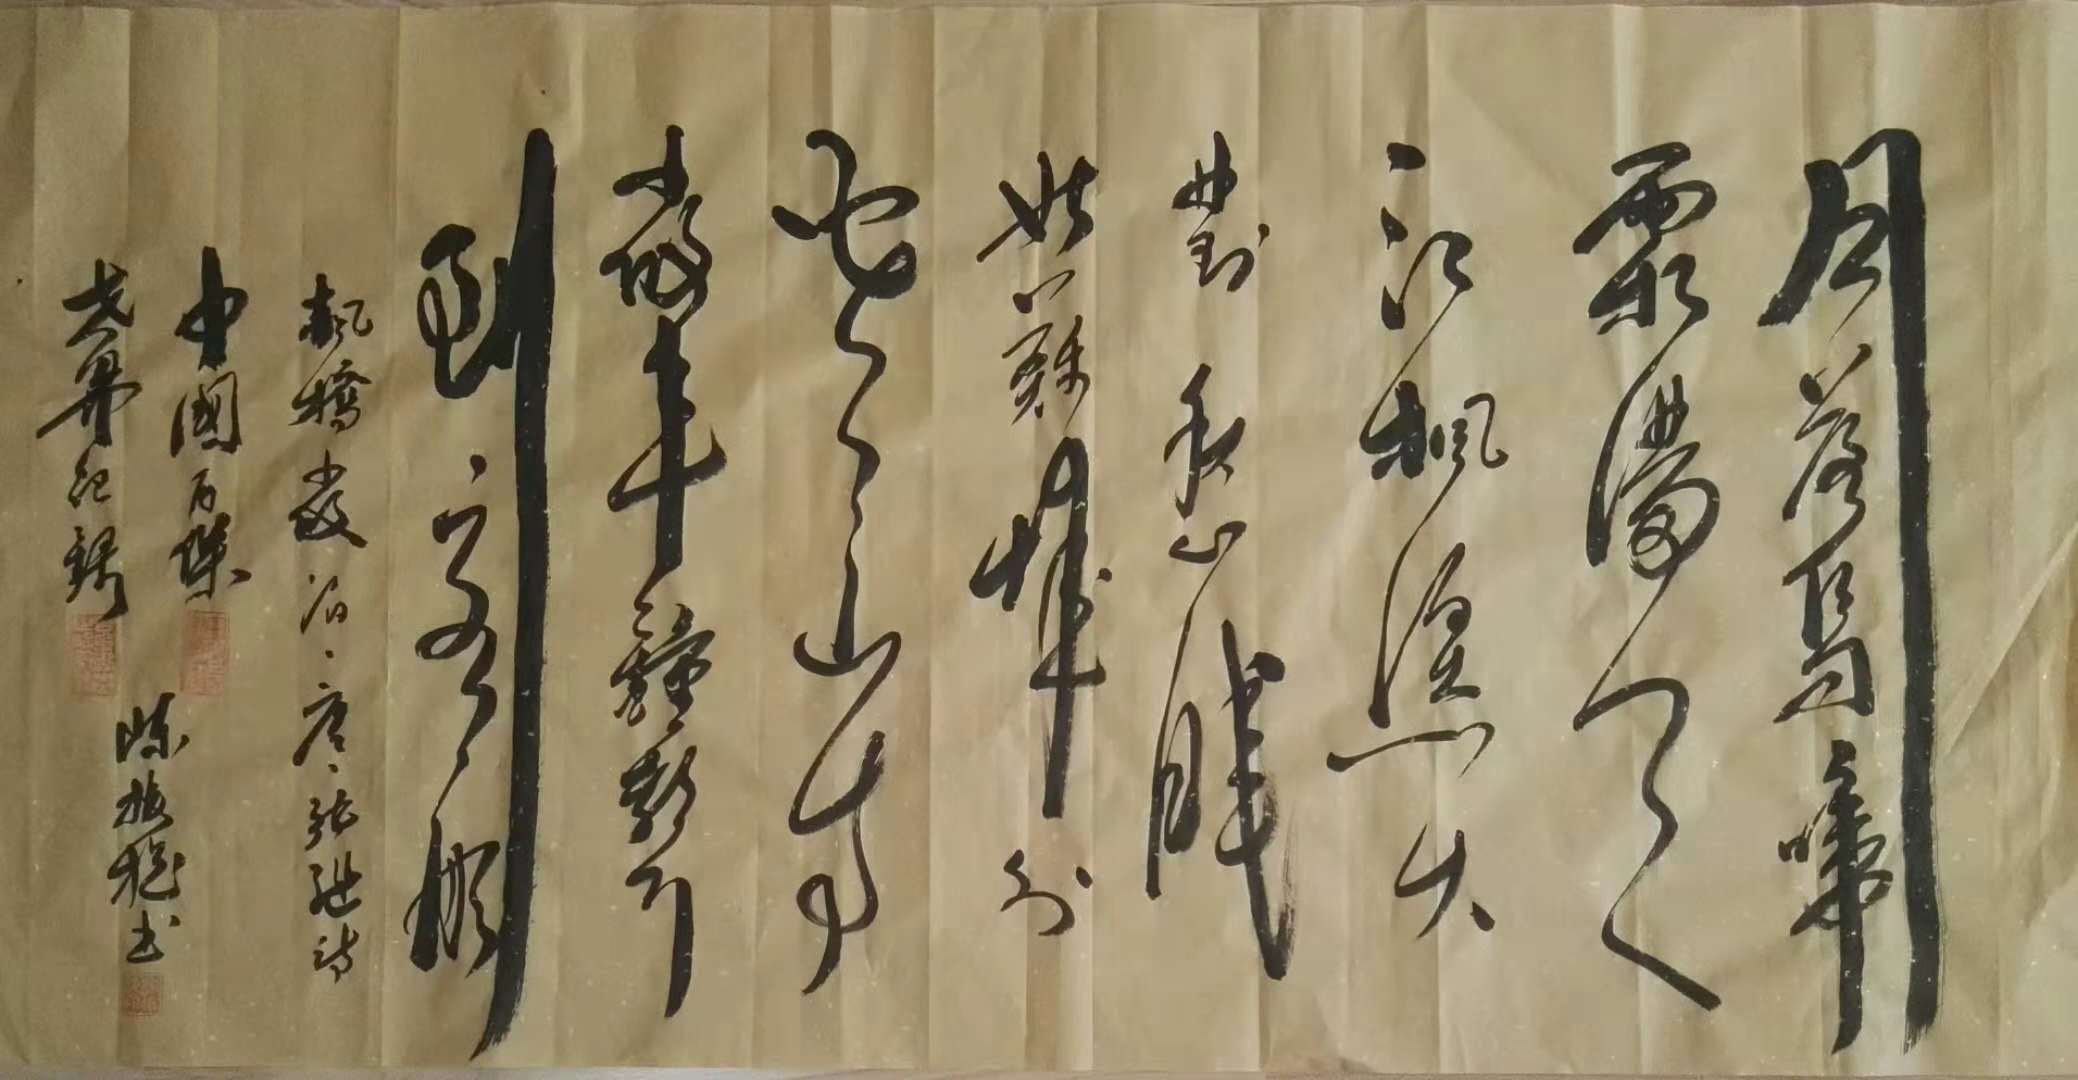 月落烏啼
霜滿天
江楓漁火
對愁眠
姑蘇城外
寒山寺
夜半鐘聲
到客船
楓橋夜泊唐張繼詩
中國百傑
世界紀錄
陳振書